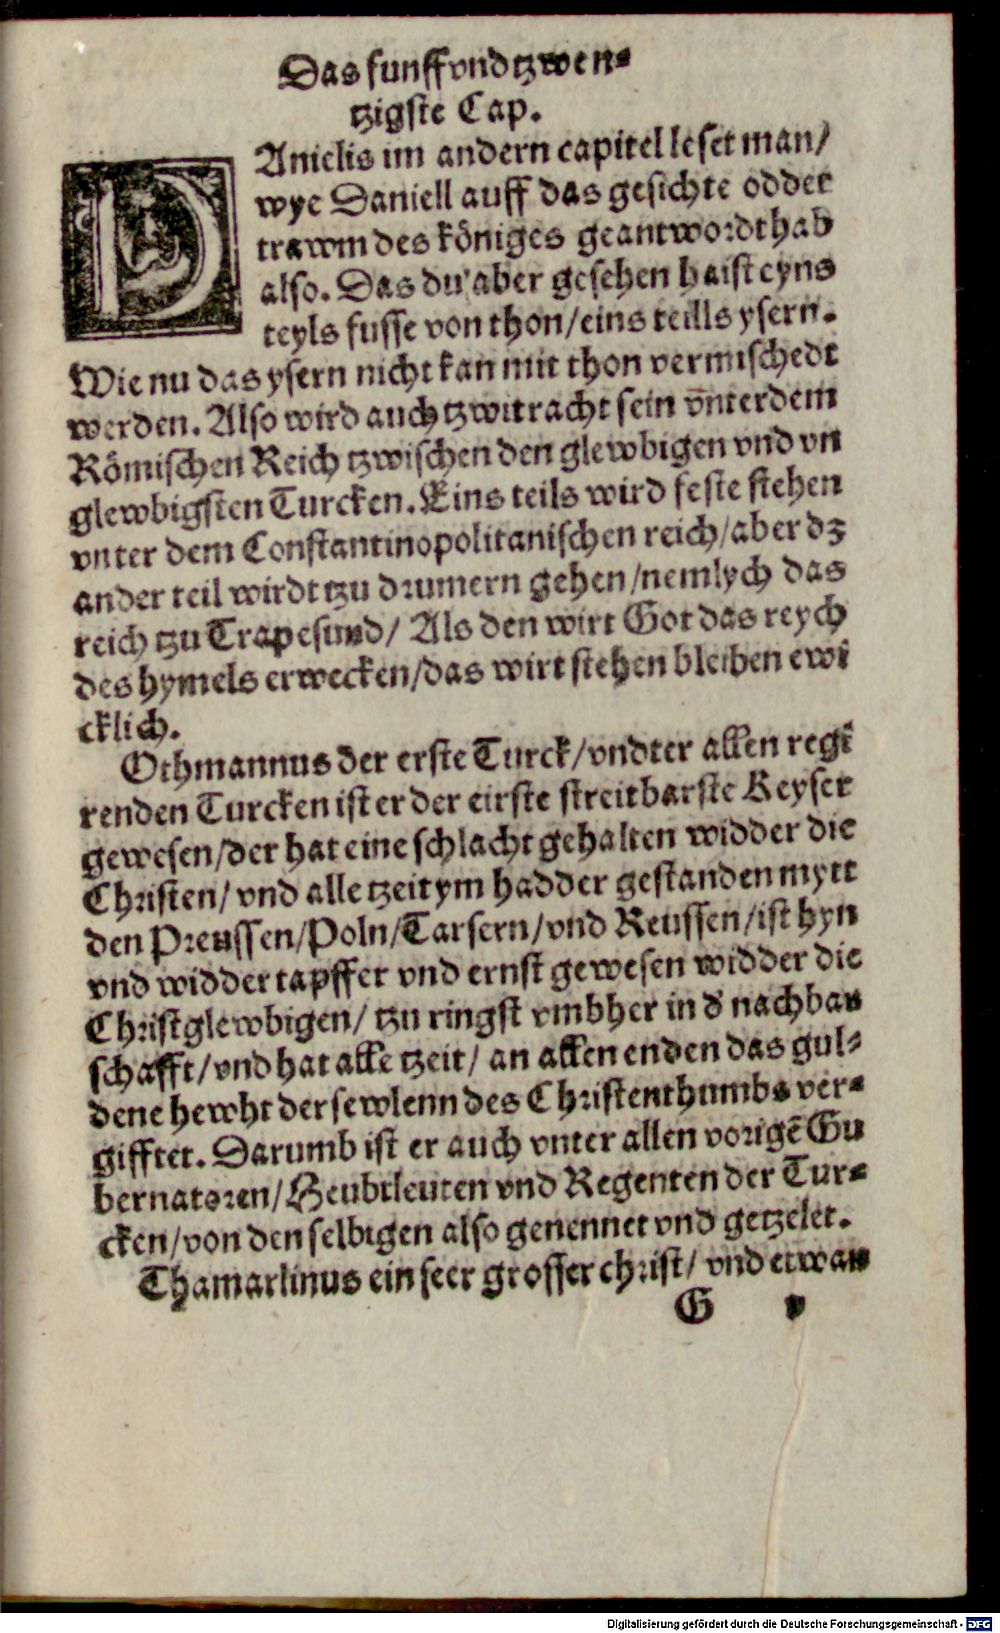 Das funff vnd tzwen-
tzigste Cap.
DAnielis im andern capitel leset man/
wye Daniell auff das gesichte odder
trawm des königes geantwordt hab
also. Das du aber gesehen haist eyns
teyls fusse von thon/eins teills ysern.
Wie nu das ysern nicht kan mit thon vermischedt
werden. Also wird auch tzwitracht sein vnterdem
Römischen Reich tzwischen den glewbigen vnd vn
glewbigsten Turcken. Eins teils wird feste stehen
vnter dem Constantinopolitanischen reich/aber dz
ander teil wirdt tzu drumern gehen/nemlych das
reich tzu Trapesund/ Als den wirt Got das reych
des hymels erwecken/das wirt stehen bleiben ewi
cklich.
Othmannus der erste Turck/vndter allen regi
renden Turcken ist er der eirste streitbarste Keyser
gewesen/der hat eine schlacht gehalten widder die
Christen/ vnd alle tzeit ym hadder gestanden mytt
den Preussen/Poln/Tarsern/vnd Reussen/ist hyn
vnd widder tapffer vnd ernst gewesen widder die
Christglewbigen/ tzu ringst vmbher in d' nachbau
schafft/vnd hat alle tzeit/ an allen enden das gul-
dene hewht der sewlenn des Christenthumbs ver-
gifftet. Darumb ist er auch vnter allen vorigē Gu
bernatoren/Heubtleuten vnd Regenten der Tur-
cken/von den selbigen also genennet vnd getzelet.
Thamarlinus ein seer grosser christ/ vnd etwan
G v
Digitalisierung gefördert durch die Deutsche Forschungsgemeinschaft - DFG